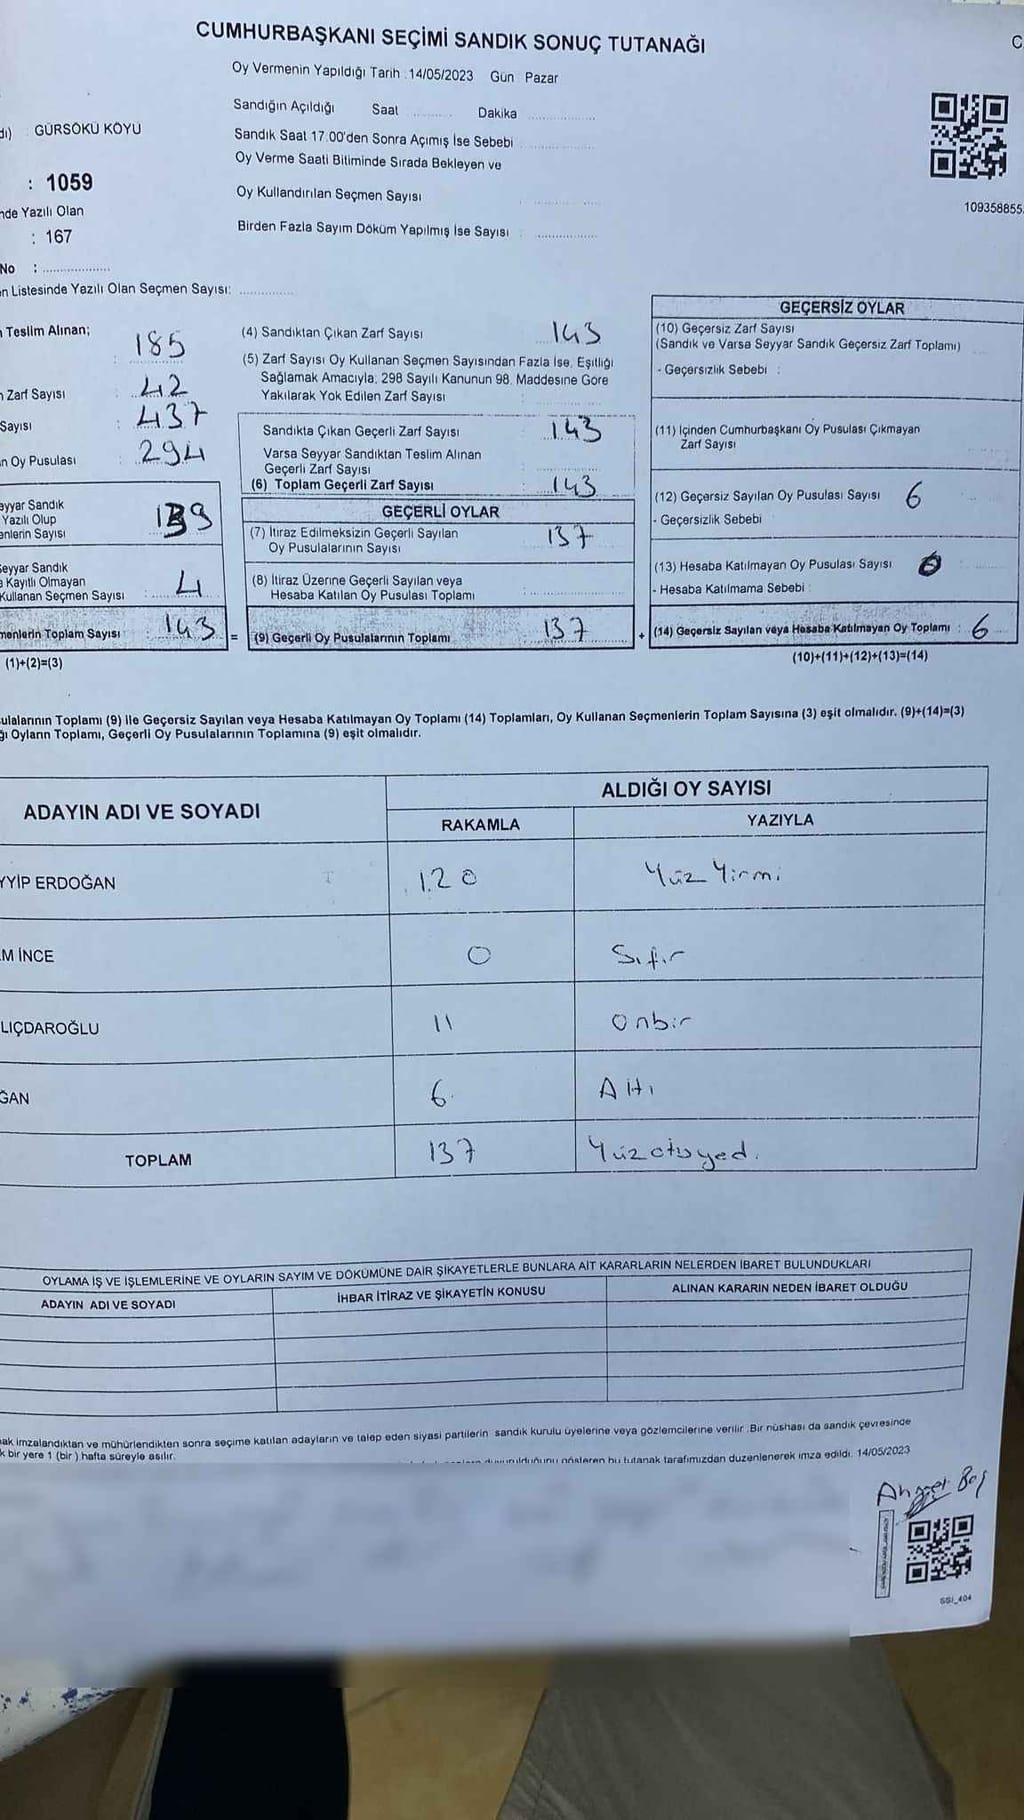 CUMHURBAŞKANI SEÇİMİ SANDIK SONUÇ TUTANAĞI
C
Oy Vermenin Yapıldığı Tarih : 14/05/2023 Gün Pazar
Sandığın Açıldığı Saat ............ Dakika ............
dı) GÜRSÖKÜ KÖYÜ
Sandık Saat 17.00'den Sonra Açımış İse Sebebi
Oy Verme Saati Bitiminde Sırada Bekleyen ve
Oy Kullandırılan Seçmen Sayısı
: 1059
nde Yazılı Olan
: 167
Birden Fazla Sayım Döküm Yapılmış İse Sayısı :
109358855
No : ..................
n Listesinde Yazılı Olan Seçmen Sayısı: ..............
Teslim Alınan;
185
Zarf Sayısı : 42
Sayısı : 437
n Oy Pusulası : 294
eyyar Sandık
Yazılı Olup
enlerin Sayısı
139
Seyyar Sandık
a Kayıtlı Olmayan
Kullanan Seçmen Sayısı : 4
menlerin Toplam Sayısı : 143 =
(1)+(2)=(3)
(4) Sandıktan Çıkan Zarf Sayısı 143
(5) Zarf Sayısı Oy Kullanan Seçmen Sayısından Fazla İse, Eşitliği
Sağlamak Amacıyla; 298 Sayılı Kanunun 98. Maddesine Göre
Yakılarak Yok Edilen Zarf Sayısı
Sandıkta Çıkan Geçerli Zarf Sayısı 143
Varsa Seyyar Sandıktan Teslim Alınan
Geçerli Zarf Sayısı
(6) Toplam Geçerli Zarf Sayısı : 143
GEÇERLİ OYLAR
(7) İtiraz Edilmeksizin Geçerli Sayılan
Oy Pusulalarının Sayısı 137
(8) İtiraz Üzerine Geçerli Sayılan veya
Hesaba Katılan Oy Pusulası Toplamı
(9) Geçerli Oy Pusulalarının Toplamı 137 +
GEÇERSİZ OYLAR
(10) Geçersiz Zarf Sayısı
(Sandık ve Varsa Seyyar Sandık Geçersiz Zarf Toplamı)
- Geçersizlik Sebebi :
(11) İçinden Cumhurbaşkanı Oy Pusulası Çıkmayan
Zarf Sayısı
(12) Geçersiz Sayılan Oy Pusulası Sayısı 6
- Geçersizlik Sebebi
(13) Hesaba Katılmayan Oy Pusulası Sayısı
- Hesaba Katılmama Sebebi :
(14) Geçersiz Sayılan veya Hesaba Katılmayan Oy Toplamı : 6
(10)+(11)+(12)+(13)=(14)
ulalarının Toplamı (9) ile Geçersiz Sayılan veya Hesaba Katılmayan Oy Toplamı (14) Toplamları, Oy Kullanan Seçmenlerin Toplam Sayısına (3) eşit olmalıdır. (9)+(14)=(3)
ğı Oyların Toplamı, Geçerli Oy Pusulalarının Toplamına (9) eşit olmalıdır.
ADAYIN ADI VE SOYADI
ALDIĞI OY SAYISI
RAKAMLA YAZIYLA
YYİP ERDOĞAN 120 Yüz Yirmi
M İNCE 0 Sıfır
LIÇDAROĞLU 11 Onbir
ĞAN 6 Altı
TOPLAM 137 Yüzotuzyed.
OYLAMA İŞ VE İŞLEMLERİNE VE OYLARIN SAYIM VE DÖKÜMÜNE DAİR ŞİKAYETLERLE BUNLARA AİT KARARLARIN NELERDEN İBARET BULUNDUKLARI
ADAYIN ADI VE SOYADI İHBAR İTİRAZ VE ŞİKAYETİN KONUSU ALINAN KARARIN NEDEN İBARET OLDUĞU
ak imzalandıktan ve mühürlendikten sonra seçime katılan adayların ve talep eden siyasi partilerin sandık kurulu üyelerine veya gözlemcilerine verilir. Bir nüshası da sandık çevresinde
k bir yere 1 (bir) hafta süreyle asılır.
duyurulduğunu gösteren bu tutanak tarafımızdan düzenlenerek imza edildi. 14/05/2023
SSI_404